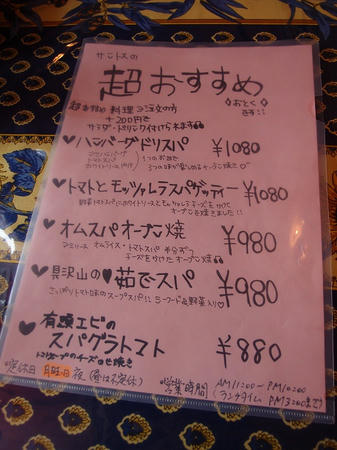 サントスの
超おすすめ
◇おとく◇
です!!
超おすすめ料理ご注文の方
+200円で
サラダ・ドリンク付けられます
♥ハンバーグドリスパ ¥1080
トマトスパ
1つのお皿で
♥トマトとモッツァレラスパゲッティー ¥1080
オーブンで焼きました!!
♥オムスパオーブン焼 ¥980
オムライス・トマトスパ 半分ずつ
チーズをかけたオーブン焼
♥具沢山の♥茹でスパ ¥980
さっぱりトマト味のスープスパ!! シーフード&野菜入り♡
♥有頭エビの
スパグラトマト ¥880
トマトスープのチーズのせ焼き
定休日 月曜日 夜(昼は不定休)
営業時間 AM11:00~PM10:00
(ランチタイム PM3:00まで)